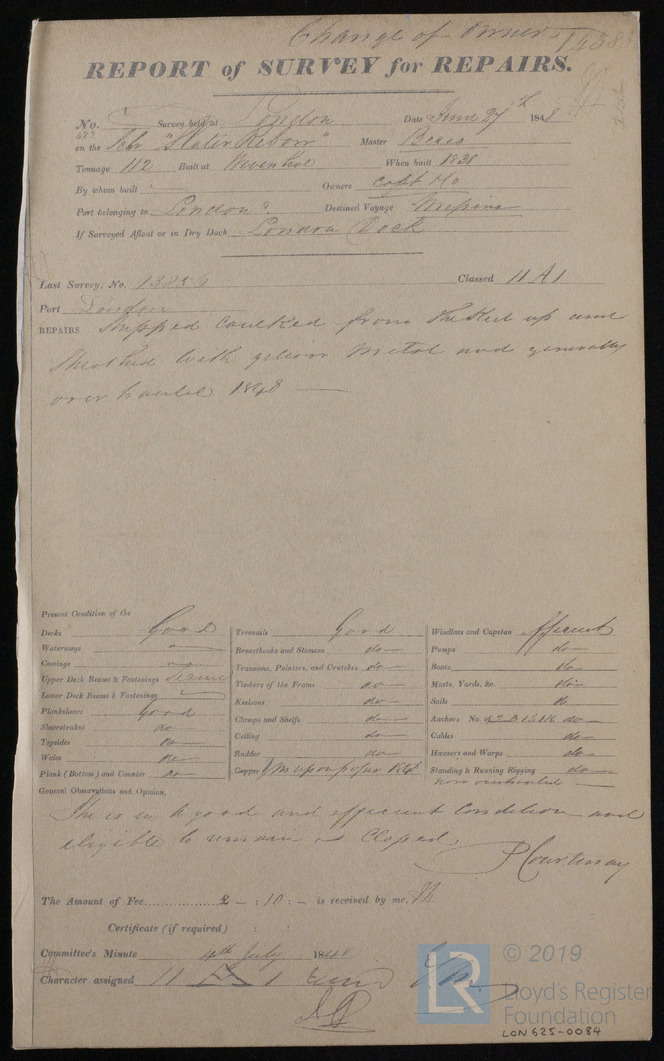 Change of Owners 14383
REPORT of SURVEY for REPAIRS.
No. Survey held at London Date June 27th 1848
on the Schr Master
Tonnage 112 Built at When built 1838
By whom built Owners Capt
Port belonging to London Destined Voyage
If Surveyed Afloat or in Dry Dock London Dock
Last Survey, No. Classed 11 A 1
Port London
REPAIRS Stripped caulked from the Keel up and
Sheathed with yellow metal and generally
overhauled 1848
Present Condition of the
Decks Good
Waterways
Comings
Upper Deck Beams & Fastenings
Lower Deck Beams & Fastenings
Planksheers Good
Sheerstrakes do
Topsides do
Wales do
Plank (Bottom) and Counter do
Treenails Good
Breasthooks and Stemson do
Transoms, Pointers, and Crutches do
Timbers of the Frame do
Keelsons do
Clamps and Shelfs do
Ceiling do
Rudder do
Copper
Windlass and Capstan Efficient
Pumps do
Boats do
Masts, Yards, &c. do
Sails do
Anchors No. do
Cables do
Hawsers and Warps do
Standing & Running Rigging do
now overhauled
General Observations and Opinion,
She is in a good and efficient condition and
eligible to remain as Classed.
P Courtenay
The Amount of Fee £ – : 10 : – is received by me,
Certificate (if required) : :
Committee's Minute 4th July 1848
Character assigned 11 A 1
LR
© 2019
Lloyd's Register
Foundation
LON625-0084